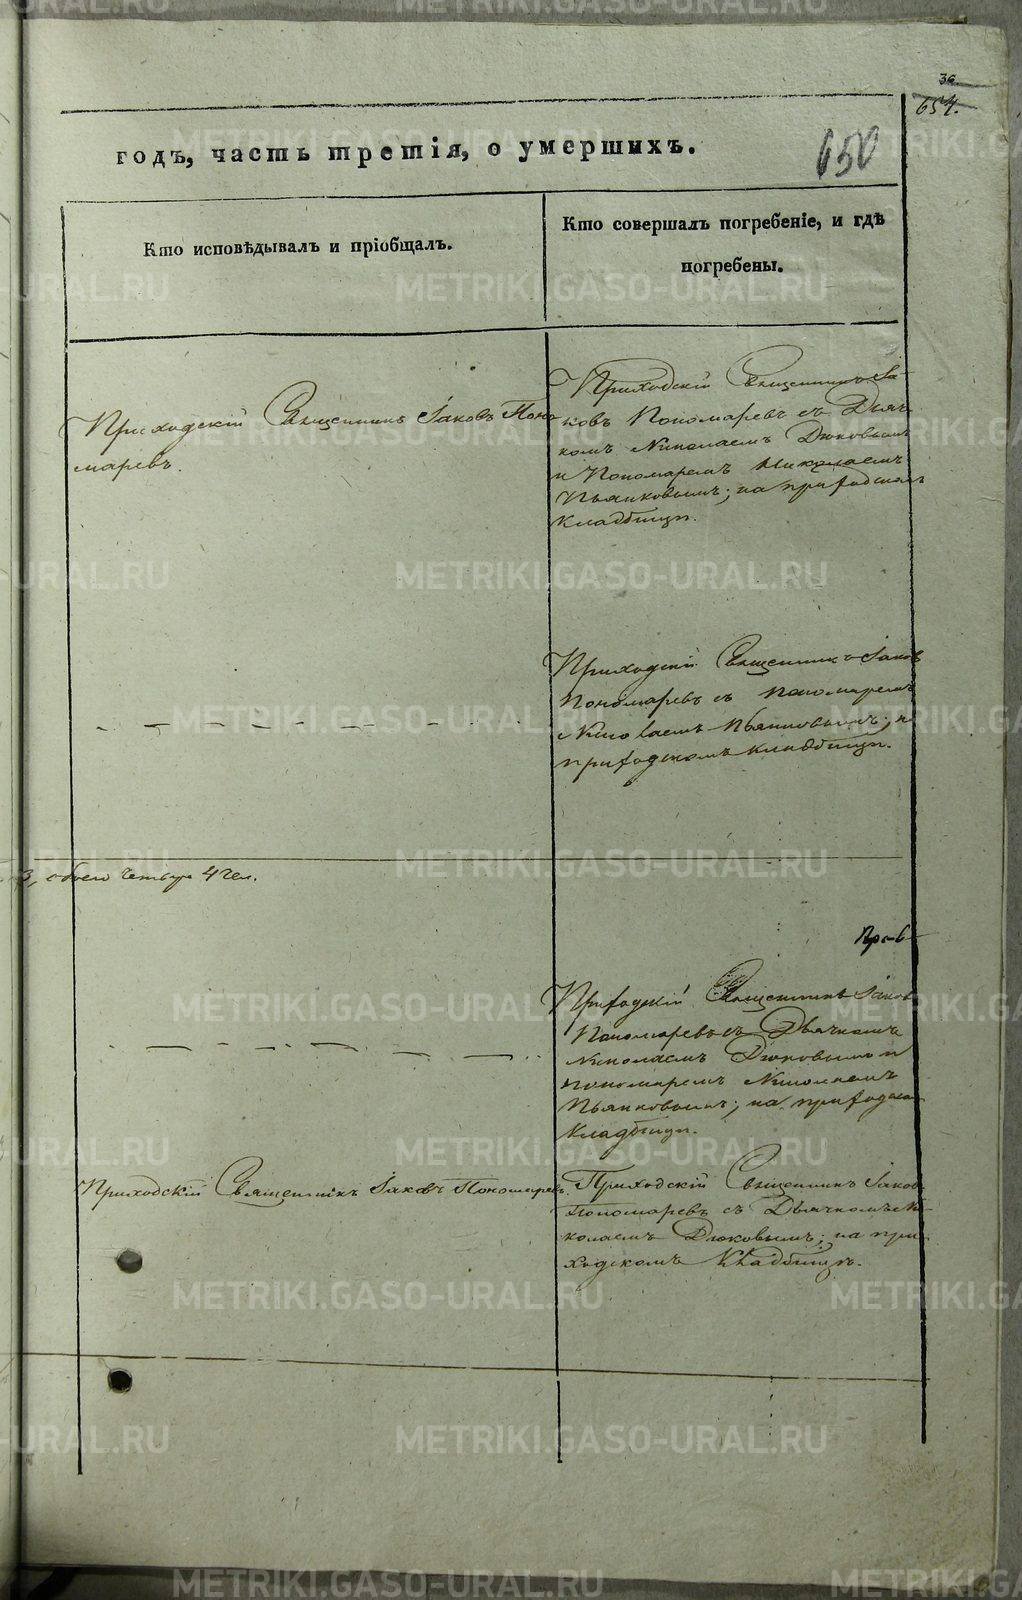 36
654.
650
годъ, часть третія, о умершихъ.
Кто исповѣдывалъ и пріобщалъ.
Кто совершалъ погребеніе, и гдѣ
погребены.
Приходскій Священникъ Іаковъ Поно-
маревъ.
Приходскій Священникъ Іа-
ковъ Пономаревъ съ Дьяч-
комъ Николаемъ Дюковымъ
и Пономаремъ Николаемъ
Пьянковымъ; на приходскомъ
Кладбищѣ.
Приходскій Священникъ Іаковъ
Пономаревъ съ пономаремъ
Николаемъ Пьянковымъ; н
приходскомъ кладбищѣ.
3, обоего четыре 4 чел.
Приходскій Священникъ Іаковъ
Пономаревъ съ Дьячкомъ
Николаемъ Дюковымъ и
пономаремъ Николаемъ
Пьянковымъ; на приходско
Кладбищѣ.
Приходскій Священникъ Іаковъ Пономаревъ.
Приходскій Священникъ Іаковъ
Пономаревъ съ Дьячкомъ Ни-
колаемъ Дюковымъ; на при-
ходскомъ Кладбищѣ.
METRIKI.GASO-URAL.RU